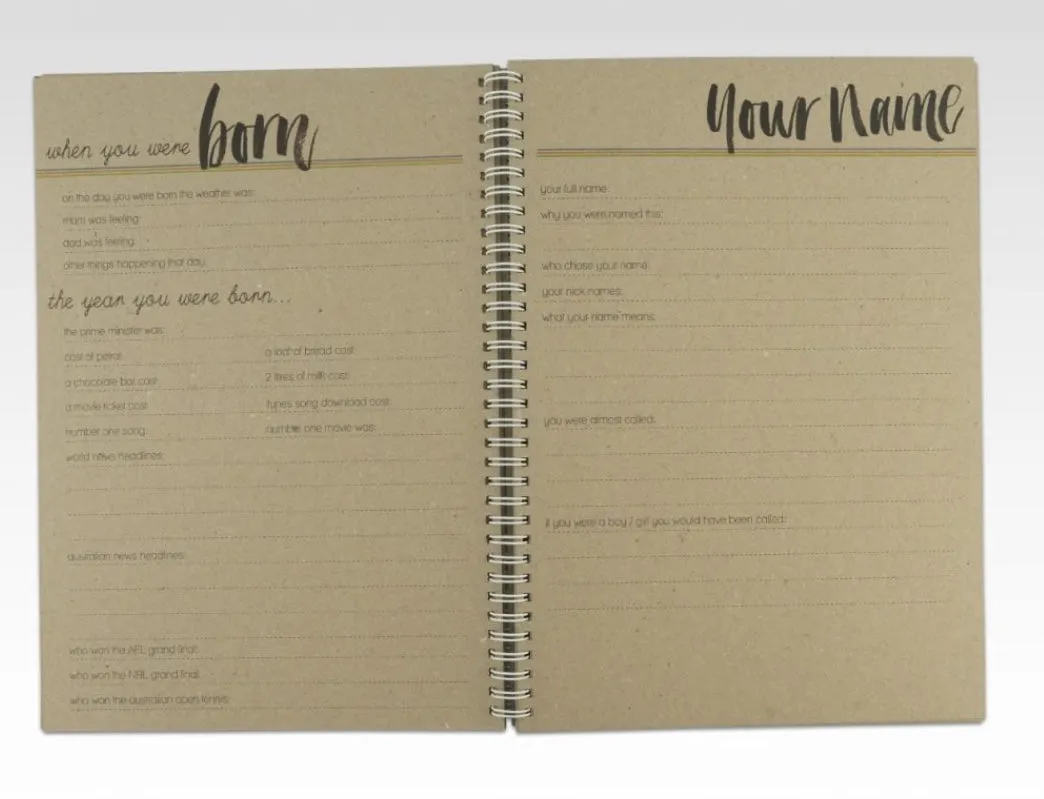 when you were born
on the day you were born the weather was:
mum was feeling:
dad was feeling:
other things happening that day:
the year you were born...
the prime minister was:
cost of petrol:
a loaf of bread cost:
a chocolate bar cost:
2 litres of milk cost:
a movie ticket cost:
itunes song download cost:
number one song:
number one movie was:
world news headlines:
australian news headlines:
who won the AFL grand final:
who won the NRL grand final:
who won the australian open tennis:
your name
your full name:
why you were named this:
who chose your name:
your nick names:
what your name means:
you were almost called:
if you were a boy / girl you would have been called: